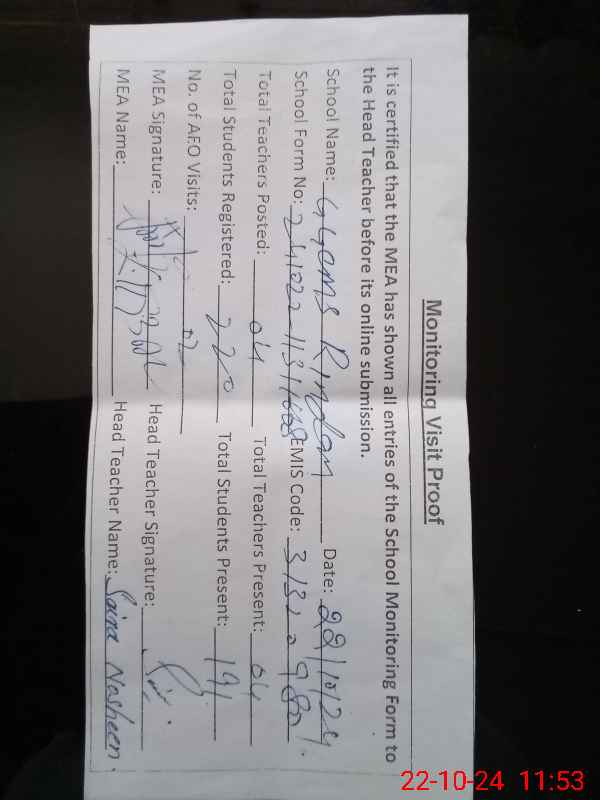 Monitoring Visit Proof
It is certified that the MEA has shown all entries of the School Monitoring Form to
the Head Teacher before its online submission.
School Name: GGCMS Date: 22/10/24.
School Form No: EMIS Code:
Total Teachers Posted: 04 Total Teachers Present: 04
Total Students Registered: 220 Total Students Present: 191
No. of AEO Visits: 02
MEA Signature: Head Teacher Signature:
MEA Name: Head Teacher Name: Saira Nosheen.
22-10-24 11:53